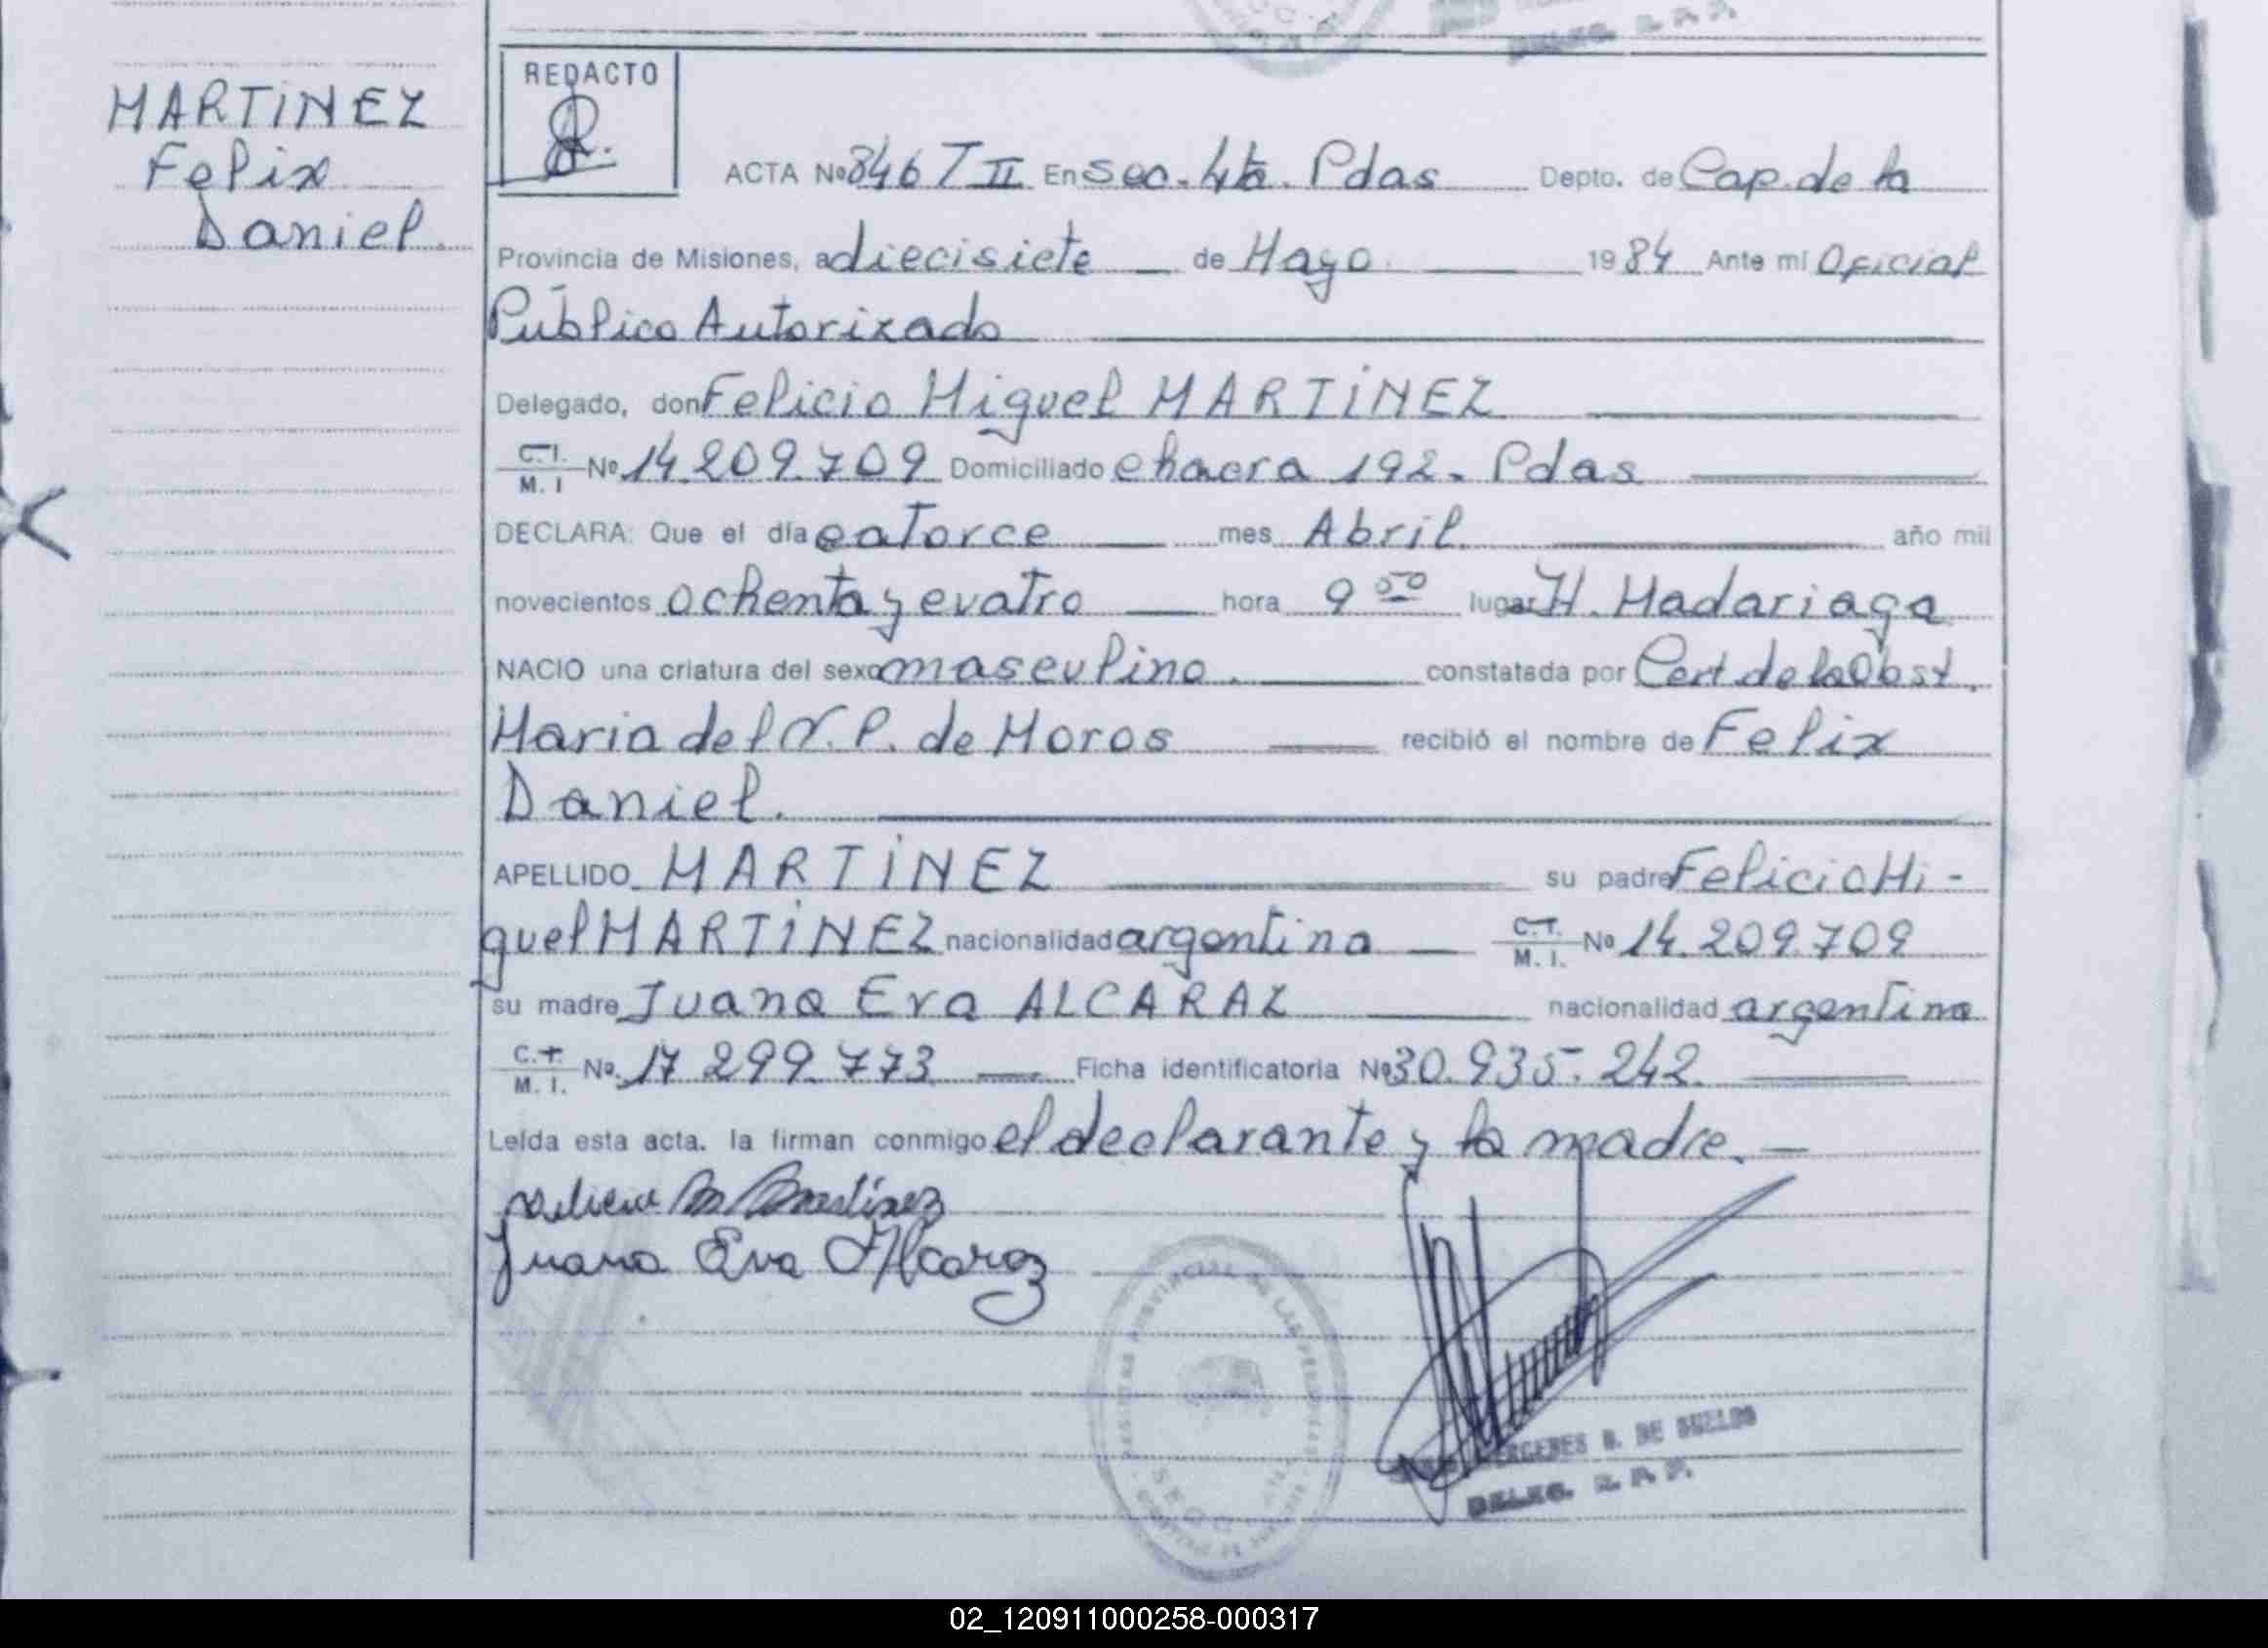 MARTINEZ
Felix
Daniel.
REDACTO
ACTA Nº 846 T II En Sec. 4ta. Pdas Depto. de Cap. de la
Provincia de Misiones, a diecisiete de Mayo 1984 Ante mi Oficial
Público Autorizado
Delegado, don Felicio Miguel MARTINEZ
C.I. M. I Nº 14.209.709 Domiciliado chacra 192. Pdas
DECLARA: Que el día catorce mes Abril año mil
novecientos ochenta y cuatro hora 9 50 lugar H. Madariaga
NACIO una criatura del sexo masculino. constatada por Cert. de la Obst.
Maria del P. de Moros recibió el nombre de Felix
Daniel.
APELLIDO MARTINEZ su padre Felicio Mi-
guel MARTINEZ nacionalidad argentina C.I. M. I. Nº 14.209.709
su madre Juana Eva ALCARAZ nacionalidad argentina
C.I. M. I. Nº 17.299.773 Ficha identificatoria Nº 30.935.242.
Leída esta acta. la firman conmigo el declarante y la madre.
Felicio M Martínez
Juana Eva Alcaraz
DE SUELDO
DELEG. R. A P.
02_120911000258-000317